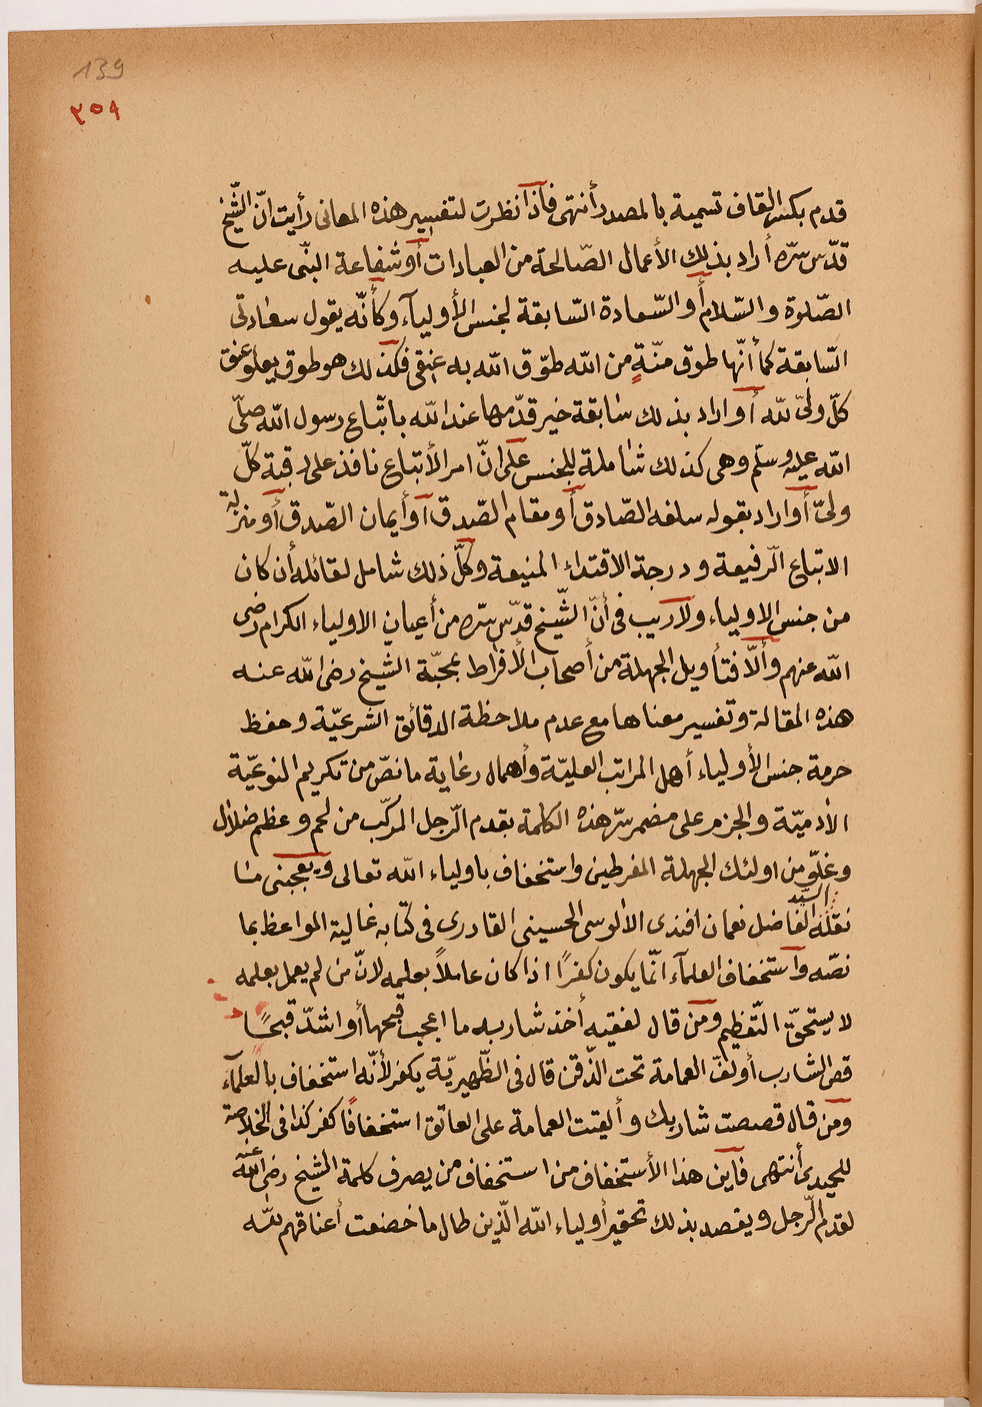 139
٢٥٨
قدم بكسر القاف تسمية بالمصدر أنتهى فأذا نظرت لتفسير هذه المعانى رأيت انّ الشّيخ
قدّس سرّه أراد بذلك الأعمال الصّالحة من العبادات أو شفاعة النبّى عليه
الصّلوة والسّلام أو السّعادة السّابقة لجنس الأوليآء وكأنّه يقول سعادتى
السّابقة كما أنّها طوق منّةٍ من الله طوّق الله به عنقى فكذلك هو طوق يعلو عنق
كلّ ولىّ لله أو اراد بذلك سٰابقة خير قدّمها عند الله باتّباع رسول الله صلّى
الله عليه وسلّم وهى كذلك شٰاملة للجنس على انّ امر الأتباع نافذ على رقبة كلّ
ولىّ أو اراد بقوله سلفه الصّادق أو مقام الصّدق أو أيمان الصّدق أو منزلة
الاتباع الرّفيعة ودرجة الاقتداء المنيعة وكلّ ذلك شامل لقائله أن كان
من جنس الاولياء ولا ريب فى أنّ الشّيخ قدّس سرّه من أعيان الاولياء الكرام رضى
الله عنهم وألّا فتأويل الجهلة من أصحاب الأفراط بمحبّة الشيخ رضى الله عنه
هذه المقالة وتفسير معناها مع عدم ملاحظة الدقائق الشرعيّة وحفظ
حرمة جنس الأولياء أهل المراتب العليّة وأهمال رعٰاية ما نصّ من تكريم النوعيّة
الأدميّة والجزم على مضمر سرّ هذه الكلمة بقدم الرّجل المركّب من لحم وعظم ضلال
وغلوّ من اولئك الجهلة المفرطين واستخفاف باولياء الله تعالى ويعجبنى مٰا
نقله السيّد الفاضل نعمان افندى الالوسى الحسينى القادرى فى كتابه غالية المواعظ بما
نصّه وأستخفاف العلمآء انّما يكون كفرًا اذا كان عاملاً بعلمه لانّ من لم يعمل بعلمه
لا يستحقّ التّعظيم ومن قال لفقيه أخذ شاربه ما اعجب قبحها أو اشدّ قبحًا
قصّ الشارب أو لفّ العمامة تحت الذّقن قال فى الظّهيريّة يكفر لأنّه استخفاف بالعلمآء
ومن قال قصصت شاربك وألقيت العمامة على العاتق استخفافًا كفر كذا فى الخلاصة
للحميدى أنتهى فأين هذا الأستخفاف من استخفاف من يصرف كلمة الشيخ رضى الله عنه
لقدم الرّجل ويقصد بذلك تحقير أولياء الله الّذين طال ما خضعت أعناقهم لله